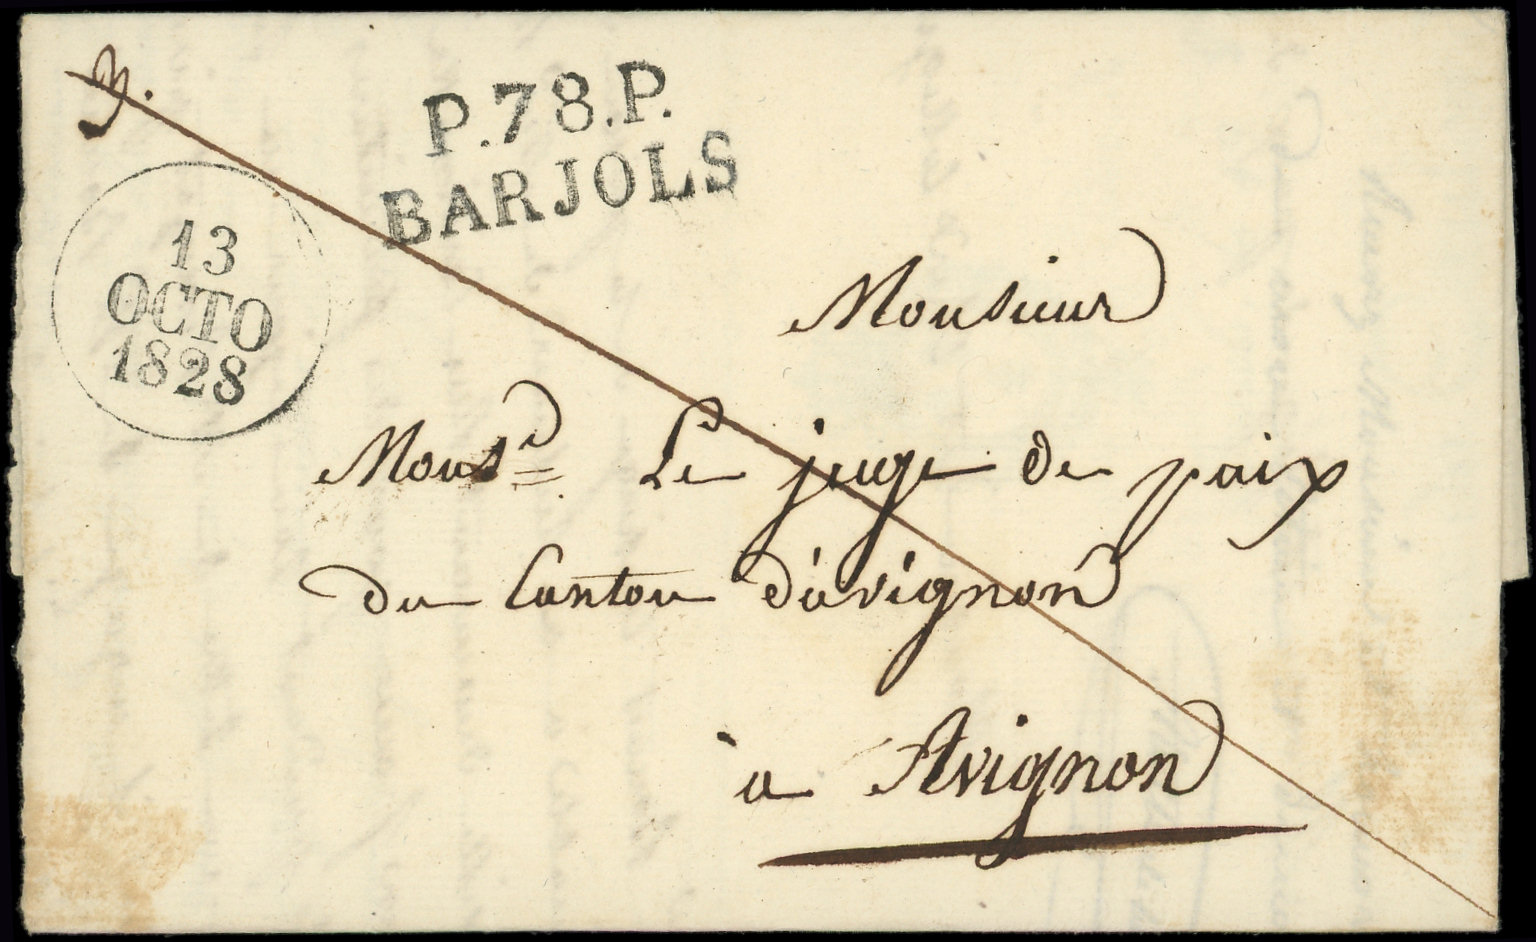 P.78.P.
BARJOLS
13
OCTO
1828
Monsieur
Monsr Le juge de paix
du Canton d'avignon
à Avignon